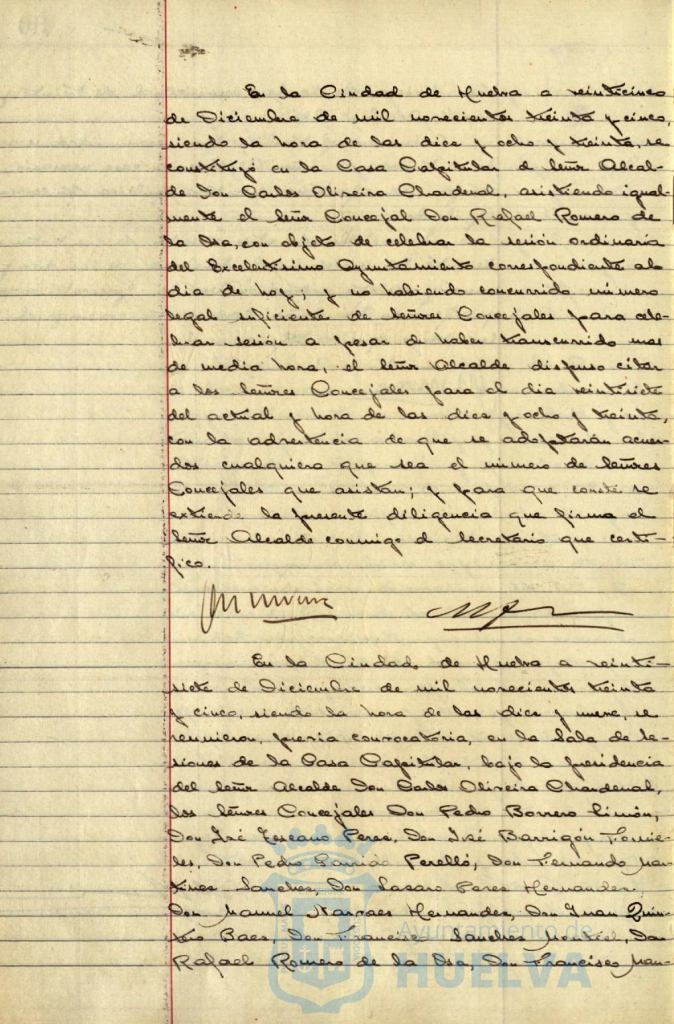 En la Ciudad de Huelva a veinticinco
de Diciembre de mil novecientos treinta y cinco,
siendo la hora de las diez y ocho y treinta, se
constituyó en la Casa Capitular el Señor Alcal-
de Don Carlos Oliveira Chardenal, asistiendo igual-
mente el Señor Concejal Don Rafael Romero de
la Osa, con objeto de celebrar la sesión ordinaria
del Excelentisimo Ayuntamiento correspondiente al
dia de hoy; y no habiendo concurrido número
legal suficiente de Señores Concejales para cele-
brar sesión a pesar de haber transcurrido mas
de media hora, el Señor Alcalde dispuso citar
a los Señores Concejales para el dia veintisiete
del actual y hora de las diez y ocho y treinta,
con la advertencia de que se adoptarán acuer-
dos cualquiera que sea el número de Señores
Concejales que asistan; y para que conste se
extiende la presente diligencia que firma el
Señor Alcalde conmigo el Secretario que certi-
fico.
En la Ciudad de Huelva a veinti-
siete de Diciembre de mil novecientos treinta
y cinco, siendo la hora de las diez y nueve, se
reunieron, previa convocatoria, en la Sala de Se-
siones de la Casa Capitular, bajo la presidencia
del Señor Alcalde Don Carlos Oliveira Chardenal,
los Señores Concejales Don Pedro Borrero Limón,
Don José Toscano Perez, Don José Barrigón Fornie-
les, Don Pedro Garrido Perelló, Don Fernando Mar-
tinez Sanchez, Don Lazaro Perez Hernandez,
Don Manuel Narvaez Hernandez, Don Juan Quin-
tero Baez, Don Francisco Sanchez Don
Rafael Romero de la Osa, Don Francisco Man-
Ayuntamiento de
HUELVA